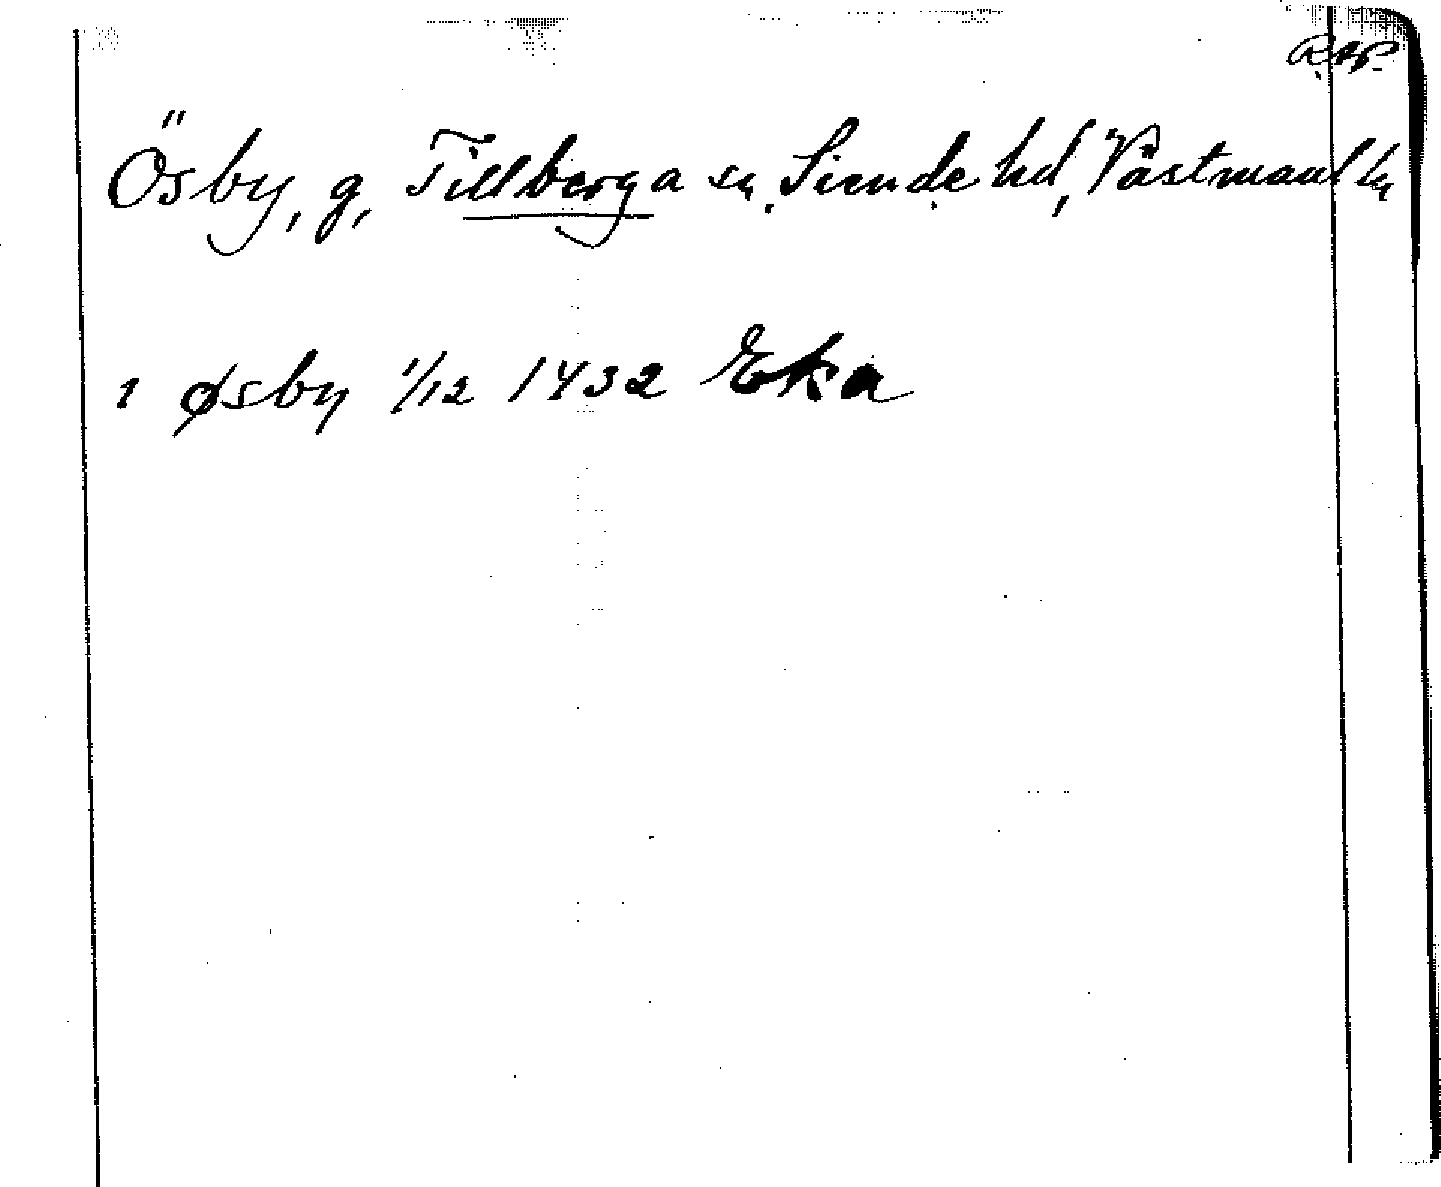 Ösby, g, Tillberga sn, Siende hd, Västmanl ln
i Øsby 1/12 1432 Eka